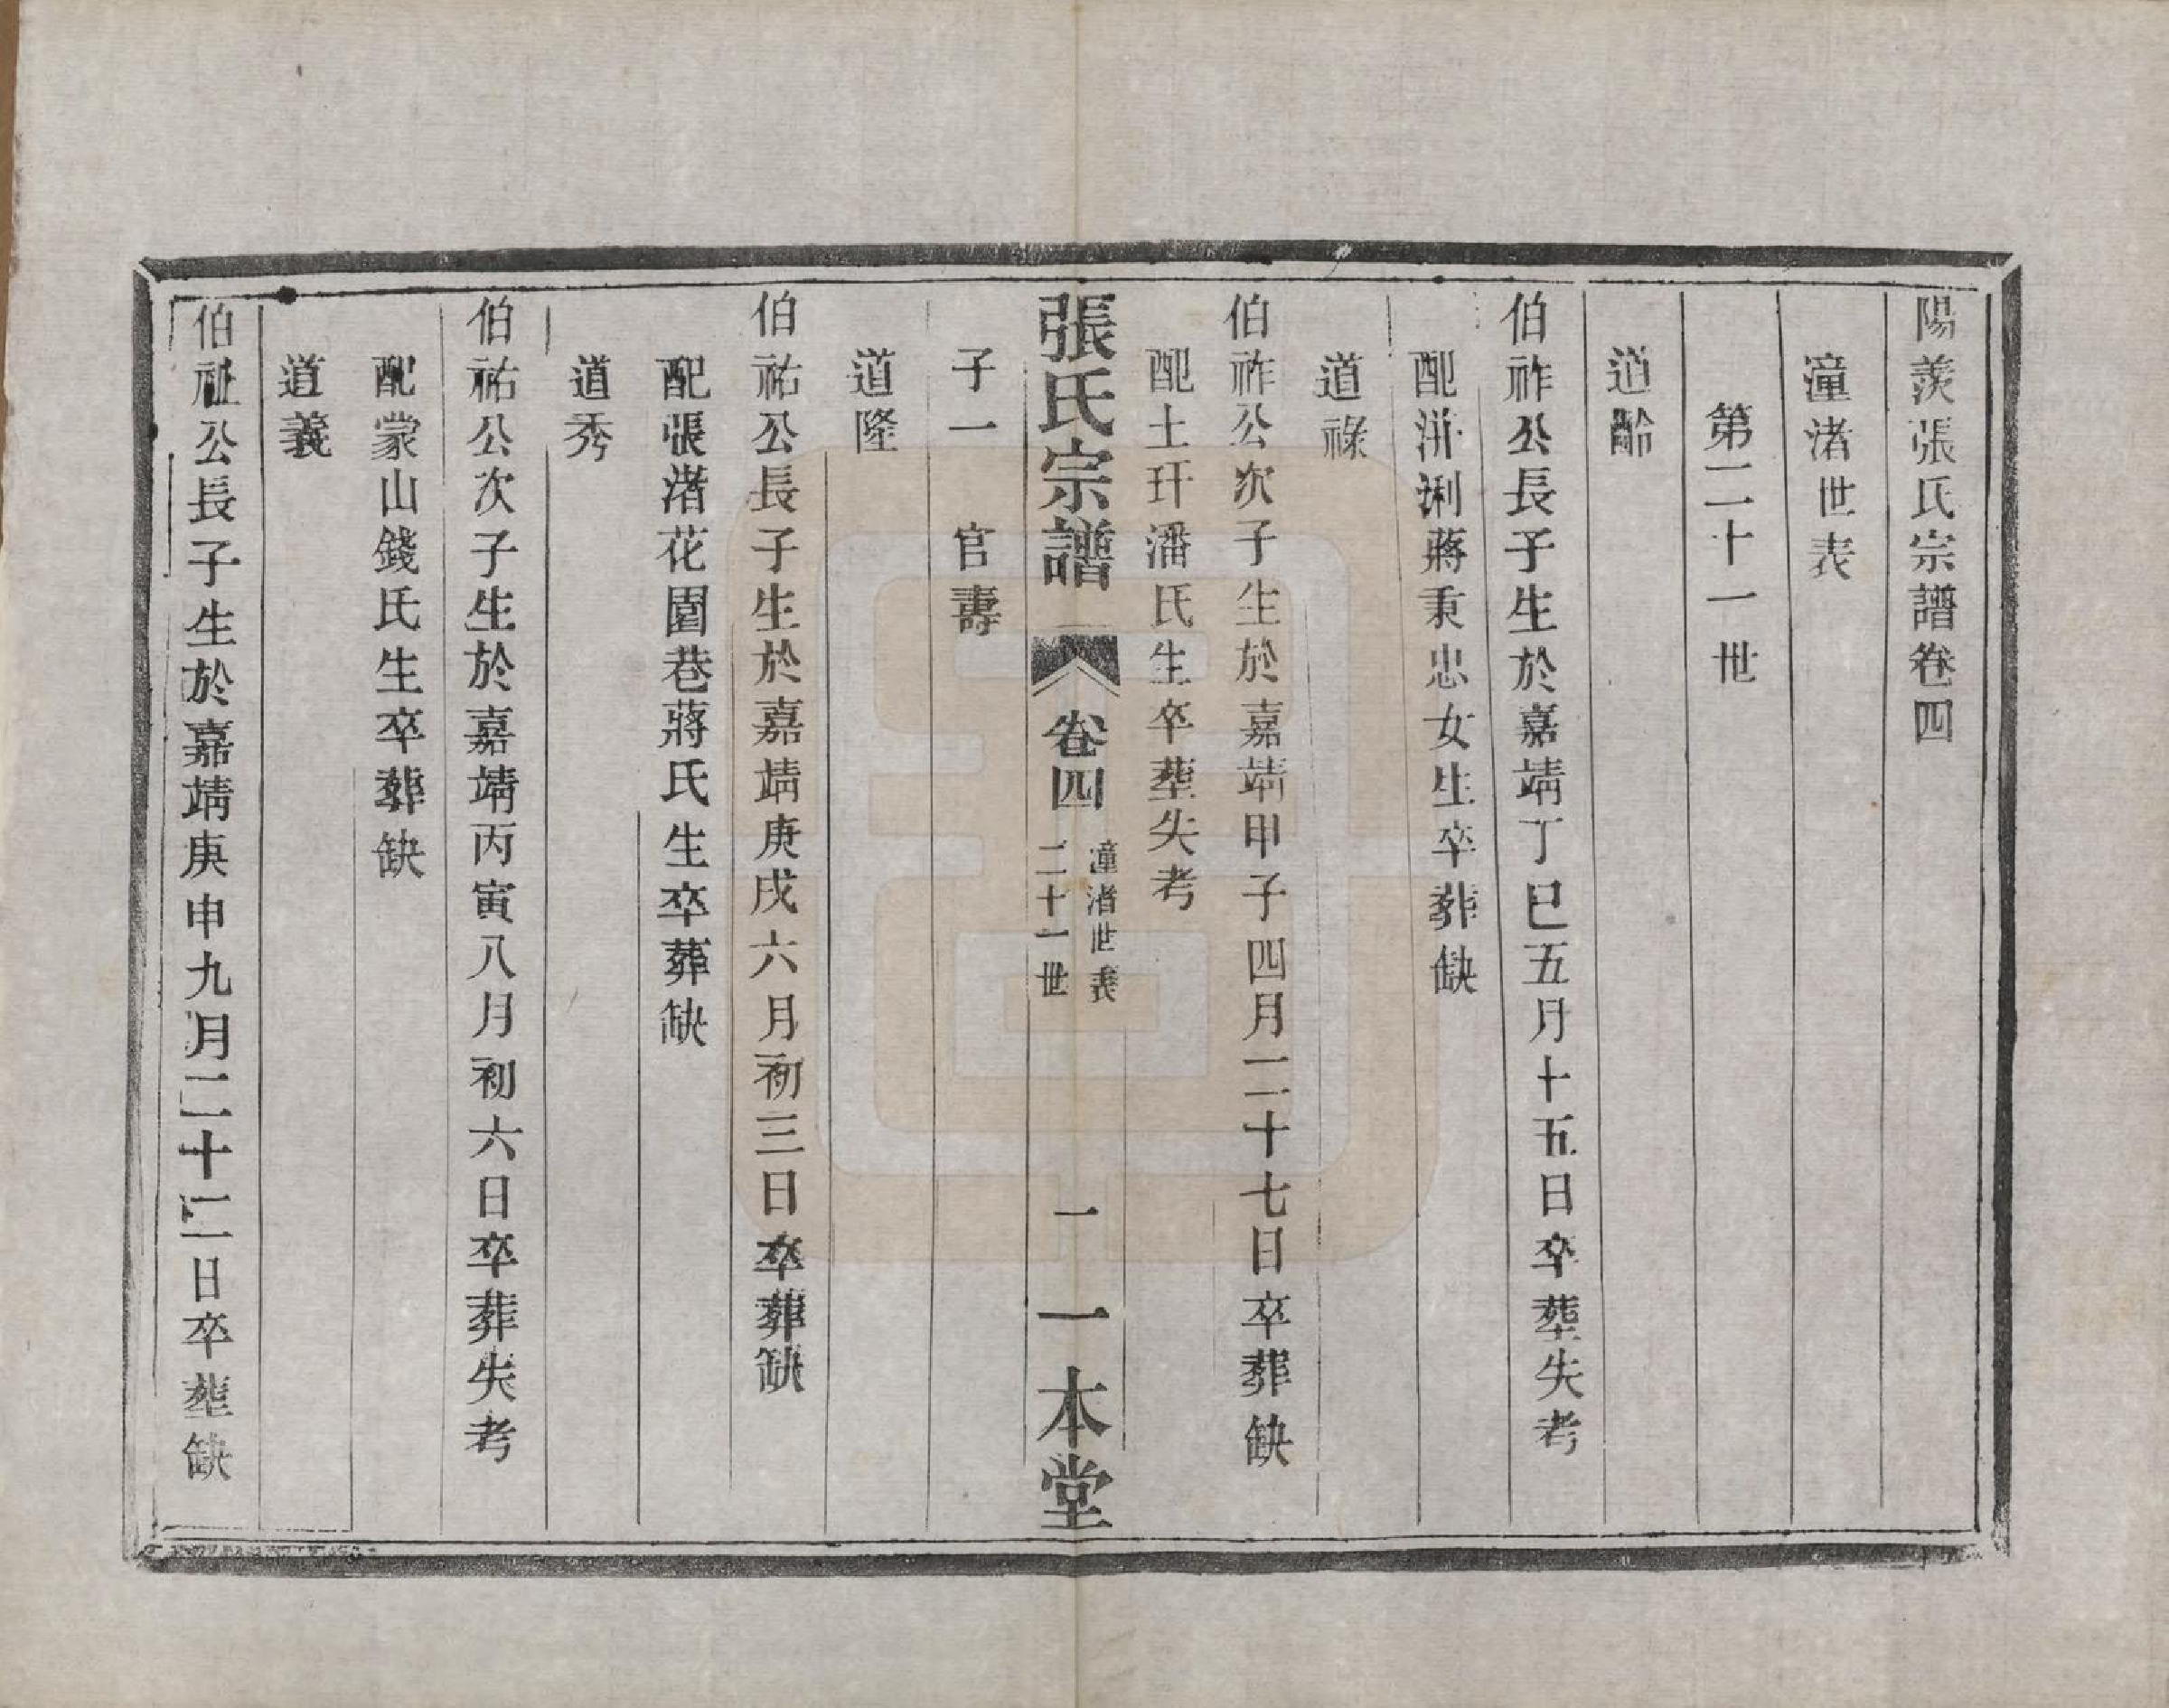 陽羨張氏宗譜卷四
潼渚世表
第二十一世
道齡
伯祚公長子生於嘉靖丁巳五月十五日卒塟失考
配洴浰蔣秉忠女生卒葬缺
道祿
伯祚公次子生於嘉靖甲子四月二十七日卒葬缺
配土玕潘氏生卒塟失考
張氏宗譜 卷四 潼渚世表 二十一世 一 一本堂
子一 官壽
道隆
伯祐公長子生於嘉靖庚戌六月初三日卒葬缺
配張渚花園巷蔣氏生卒葬缺
道秀
伯祐公次子生於嘉靖丙寅八月初六日卒葬失考
配蒙山錢氏生卒葬缺
道義
伯祉公長子生於嘉靖庚申九月二十二日卒塟缺